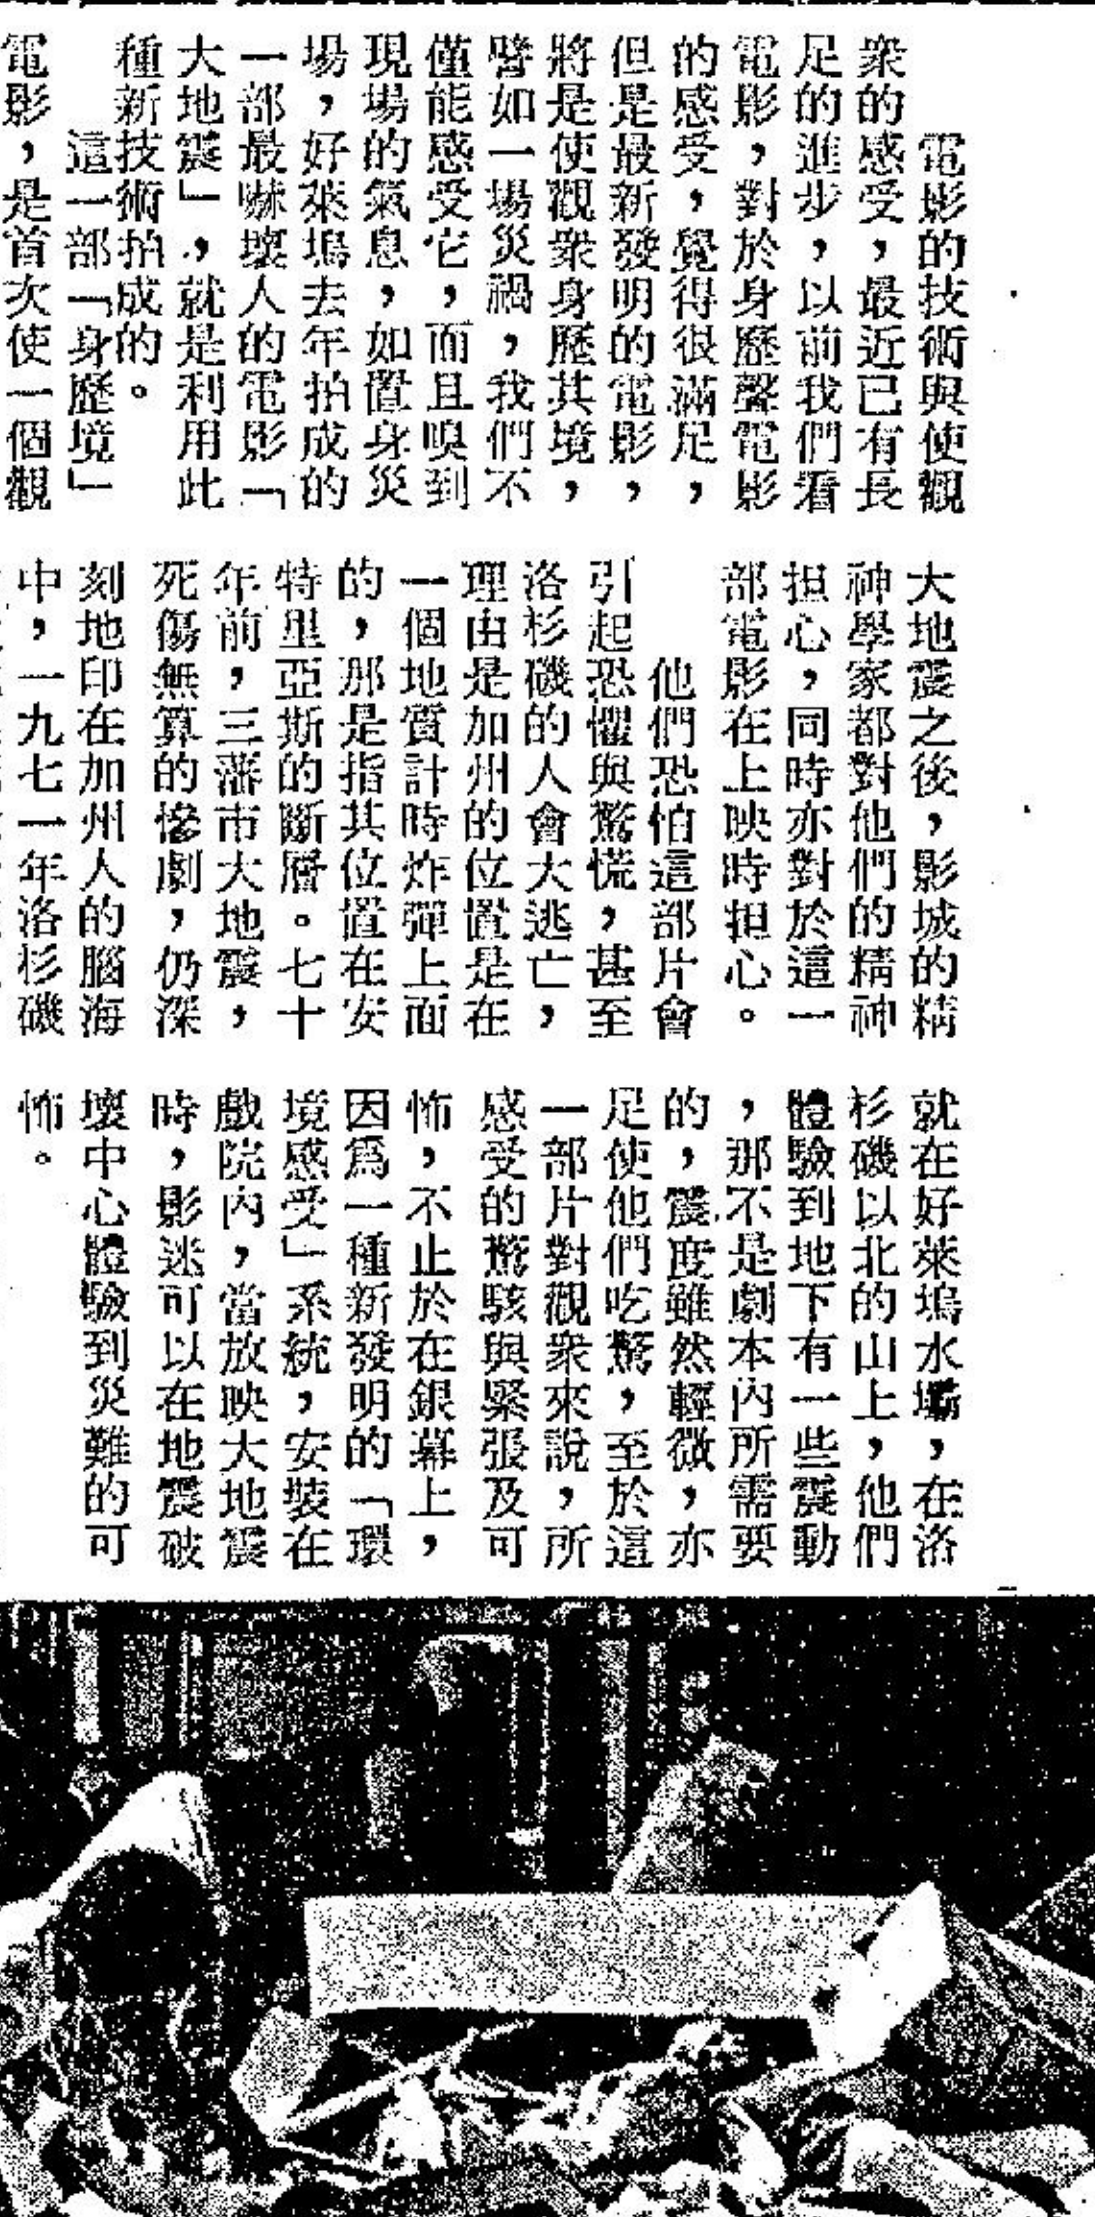 電影的技術與使觀
衆的感受，最近已有長
足的進步，以前我們看
電影，對於身歷聲電影
的感受，覺得很滿足，
但是最新發明的電影，
將是使觀衆身歷其境，
譬如一場災禍，我們不
僅能感受它，而且嗅到
現場的氣息，如置身災
場，好萊塢去年拍成的
一部最嚇壞人的電影「
大地震」，就是利用此
種新技術拍成的。
這一部「身歷境」
電影，是首次使一個觀
大地震之後，影城的精
神學家都對他們的精神
担心，同時亦對於這一
部電影在上映時担心。
他們恐怕這部片會
引起恐懼與驚慌，甚至
洛杉磯的人會大逃亡，
理由是加州的位置是在
一個地質計時炸彈上面
的，那是指其位置在安
特里亞斯的斷層。七十
年前，三藩市大地震，
死傷無算的慘劇，仍深
刻地印在加州人的腦海
中，一九七一年洛杉磯
就在好萊塢水壩，在洛
杉磯以北的山上，他們
體驗到地下有一些震動
，那不是劇本內所需要
的，震度雖然輕微，亦
足使他們吃驚，至於這
一部片對觀衆來說，所
感受的驚駭與緊張及可
怖，不止於在銀幕上，
因爲一種新發明的「環
境感受」系統，安裝在
戲院內，當放映大地震
時，影迷可以在地震破
壞中心體驗到災難的可
怖。